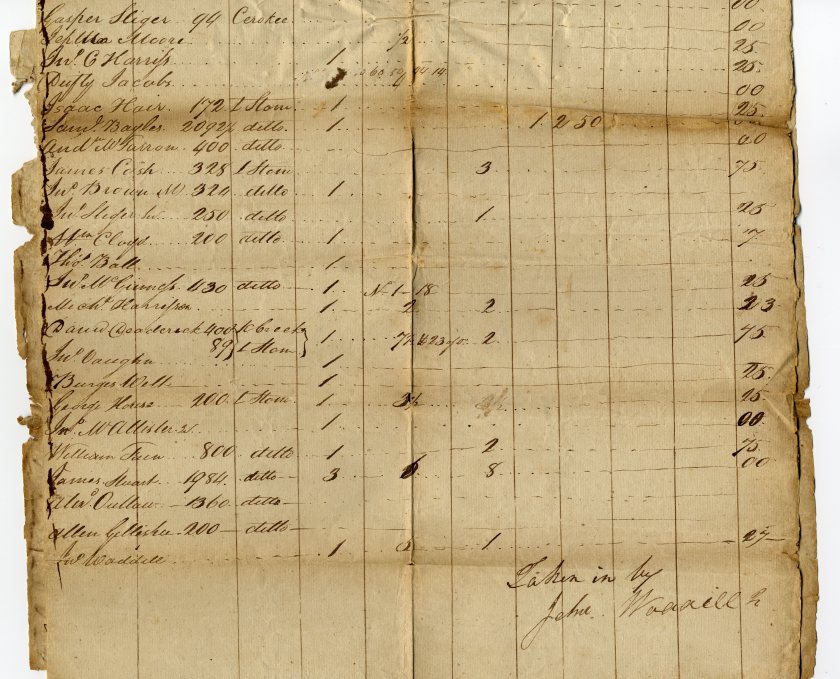 00
Casper Sliger 94 Cerokee
00
Moore 1/2
25
Jno. C Harriss 1
25
Dufty Jacobs
00
Isaac Hair 172 L Stom 1
25
Saml. Bayles 209 2/2 ditto 1 1 2 50
Andw. McFarron 400 ditto 00
James Cash 328 L Stom 3 75
Jno. Brown M 320 ditto 1
Jno. Sliger 250 ditto 1 25
Wm Cloyd 200 ditto 1 17
Thos. Ball 1
Jno. McGinness 430 ditto 1 No 1 18 25
Michl. Harrison 2 2 23
David Deaderick 400 Creek 1 2 75
89 L Stom
Jno. Vaughn 1
Burges Wall 1 25
George House 200 L Stom 25
Jno. McAllister 1 00
William 800 ditto 1 2 75
James Stuart 1984 ditto 3 6 8 00
Alexr. Outlaw 1360 ditto
Allen Gillespie 200 ditto
Jno. Waddell 1 1 27
Taken in by
John Waddill